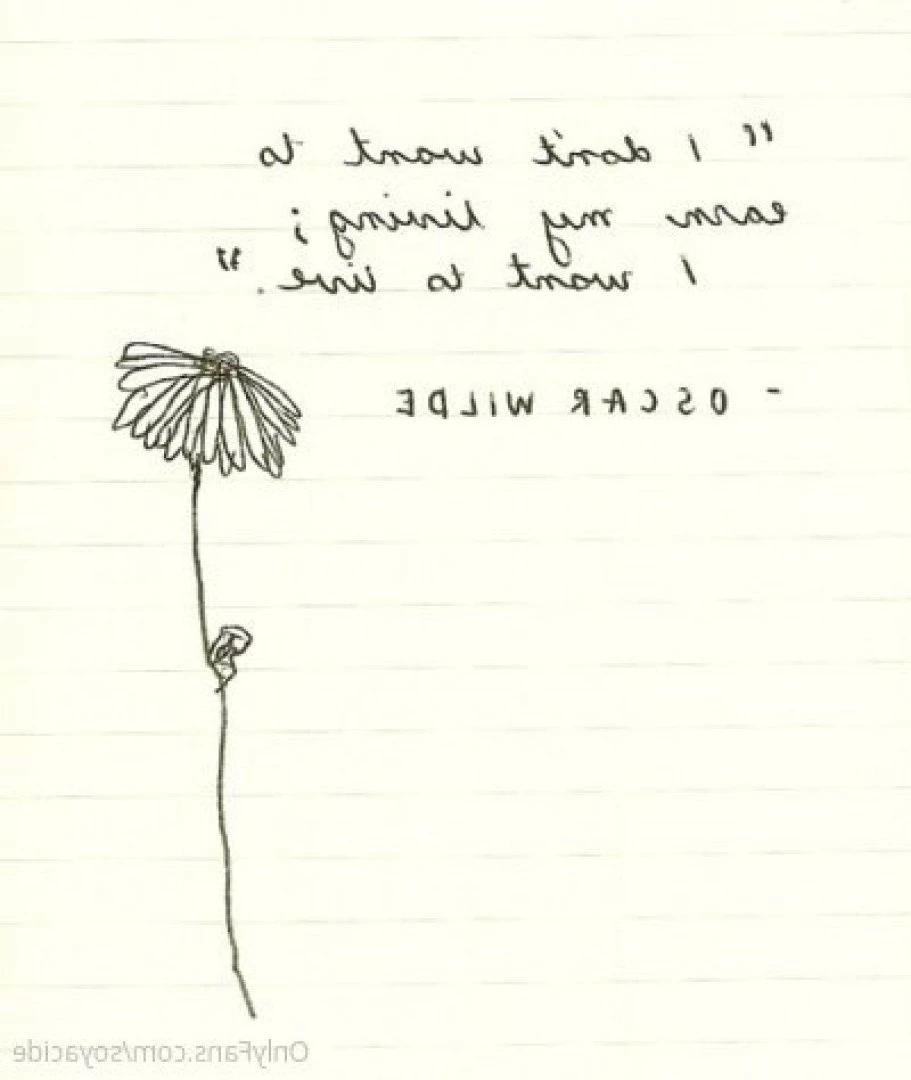 "I don't want to
earn my living;
I want to live."
- OSCAR WILDE
OnlyFans.com/soyacide